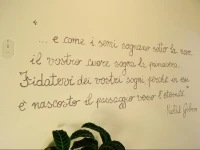 ... e come i semi sognano sotto la neve
il vostro cuore sogna la primavera.
Fidatevi dei vostri sogni perchè in essi
è nascosto il passaggio verso l'eternità"